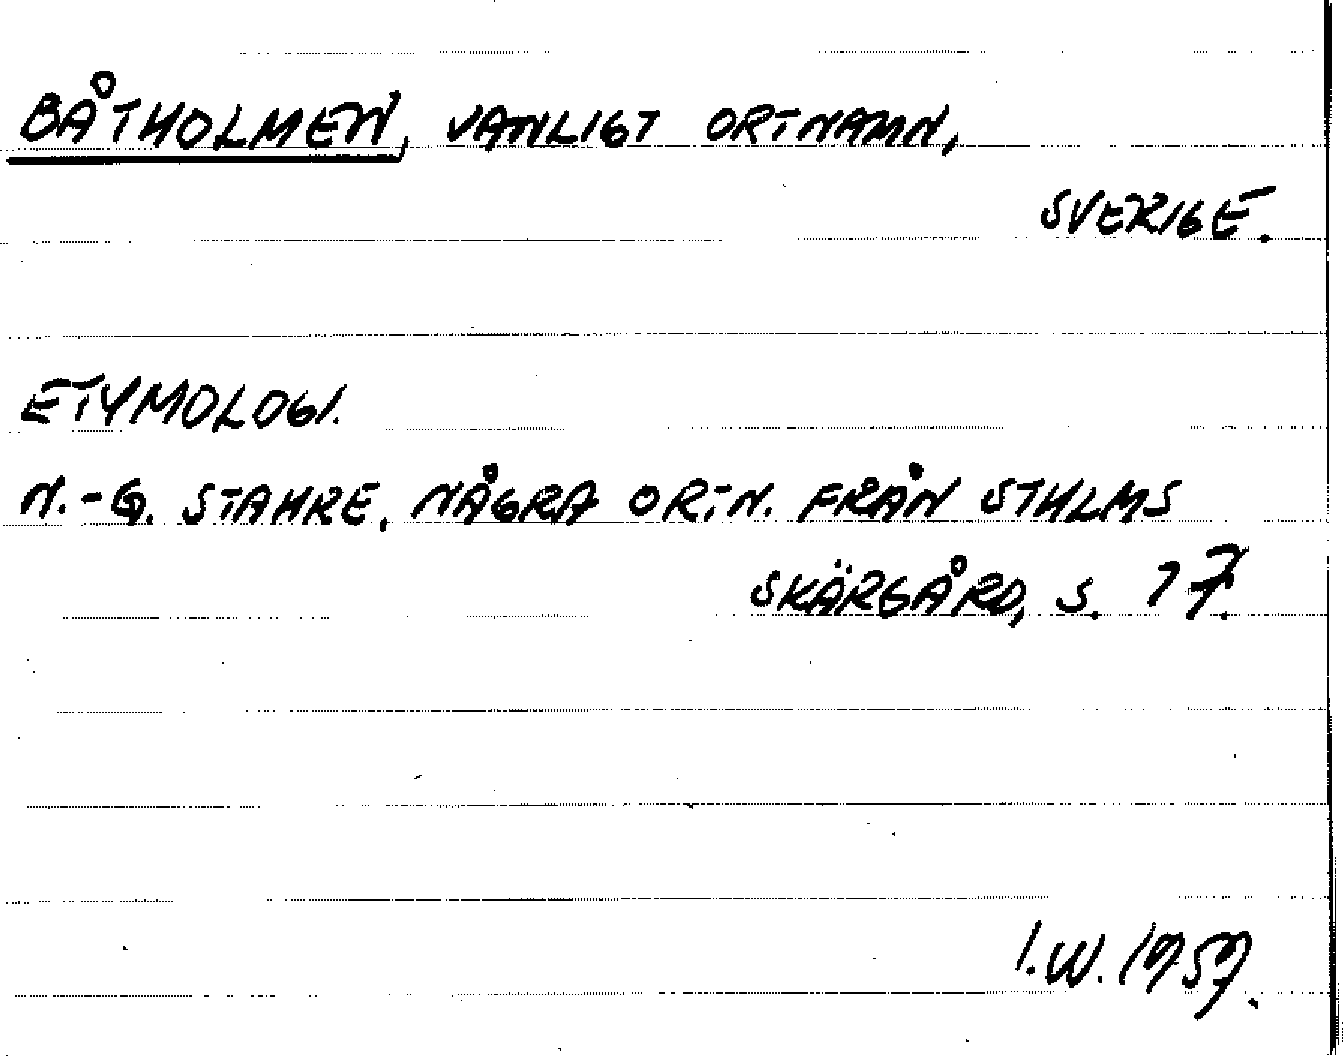 BÅTHOLMEN, VANLIGT ORTNAMN,
SVERIGE.
ETYMOLOGI.
N.-G. STAHRE, NÅGRA ORTN. FRÅN STHLMS
SKÄRGÅRD, S. 17.
I.W. 1959.